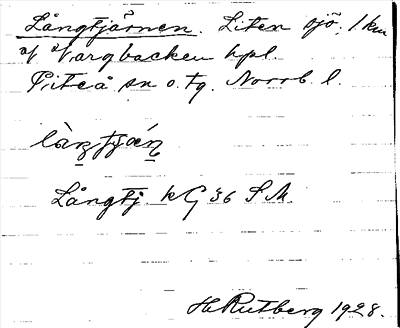 Långtjärnen. Liten sjö, 1 km
af Vargbacken hpl.
Piteå sn o. tg. Norrb. l.
Långtj. k G 36 S.M.
H Rutberg 1928.